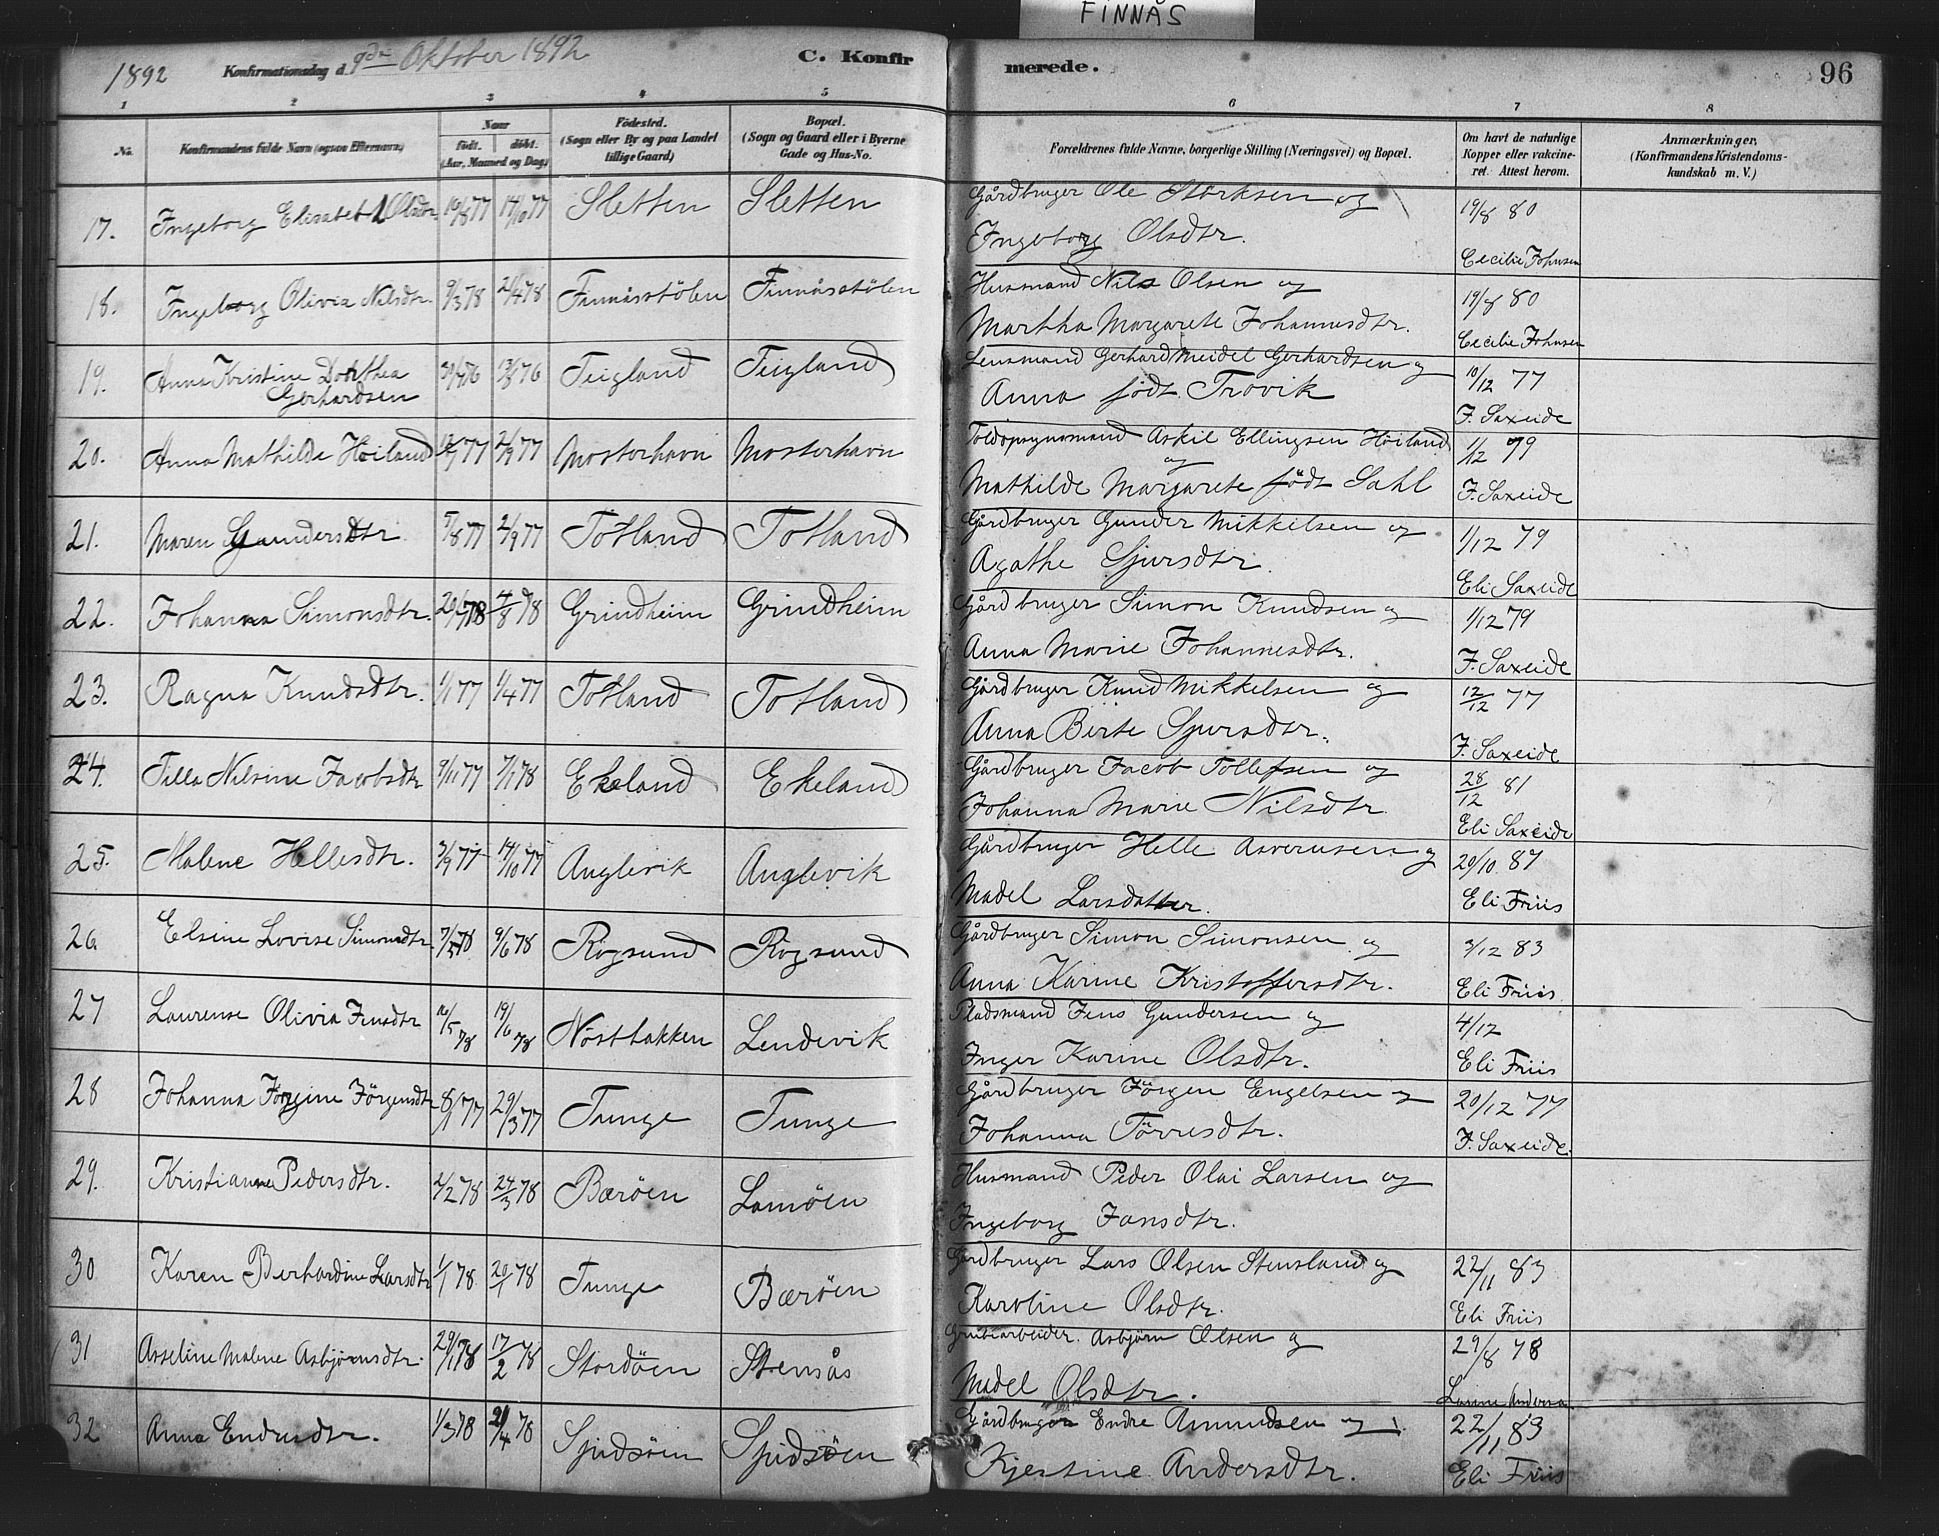 FINNÅS
1892 Konfirmationsdag d. 9de Oktober 1892 C. Konfirmerede. 96
1 2 3 4 5 6 7 8
No. Konfirmandens fulde Navn (ogsaa Efternavn.) Naar født. døbt. (Aar, Maaned og Dag) Fødested. (Sogn eller By og paa Landet tillige Gaard) Bopæl. (Sogn og Gaard eller i Byerne Gade og Hus-No. Forældrenes fulde Navne, borgerlige Stilling (Næringsvei) og Bopæl. Om havt de naturlige Kopper eller vakcineret. Attest herom. Anmærkninger. (Konfirmandens Kristendomskundskab m. V.)
17. Ingeborg Elisabet Olsdtr 10/8 77 14/10 77 Sletten Sletten Gårdbruger Ole Størksen og 19/8 80
Ingeborg Olsdtr. Cecilie Johnsen
18. Ingeborg Olivia Nilsdtr. 9/3 78 21/4 78 Finnåsstölen Finnåsstölen Husmand Nils Olsen og 19/8 80
Martha Margarete Johannesdtr. Cecilie Johnsen
19. Anna Kristine Dorthea 76 76 Teigland Teigland Lensmand Gerhard Meidel Gerhardsen og 10/12 77
Gerhardsen Anna født Trovik J. Saxeide
20. Anna Mathilde Höiland 77 2/9 77 Mosterhavn Mosterhavn Toldopsynsmand Askil Ellingsen Höiland 1/12 79
og
Mathilde Margarete født Sahl J. Saxeide
21. Maren Gundersdtr 5/8 77 2/9 77 Totland Totland Gårdbruger Gunder Mikkelsen og 1/12 79
Agathe Sjursdtr. Eli Saxeide
22. Johanna Simonsdtr. 78 4/8 78 Grindheim Grindheim Gårdbruger Simon Knudsen og 1/12 79
Anna Marie Johannesdtr. J. Saxeide
23. Ragna Knudsdtr. 1/1 77 1/4 77 Totland Totland Gårdbruger Knud Mikkelsen og 12/12 77
Anna Birte Sjursdtr. J. Saxeide
24. Tilla Nilsine Jacobsdtr 9/11 77 7/1 78 Ekeland Ekeland Gårdbruger Jacob Tollefsen og 28/12 81
Johanna Marie Nilsdtr Eli Saxeide
25. Malene Hellesdtr. 3/9 77 14/10 77 Anglevik Anglevik Gårdbruger Helle Asverusen og 20/10 87
Madel Larsdatter. Eli Friis
26 Elsine Lovise Simonsdtr 78 9/6 78 Rögsund Rögsund Gårdbruger Simon Simonsen og 3/12 83
Anna Karine Kristoffersdtr. Eli Friis
27 Laurense Olivia Jensdtr 16/5 78 19/6 78 Nöstbakken Lendevik Pladsmand Jens Gundersen og 4/12
Inger Karine Olsdtr. Eli Friis
28 Johanna Jörgine Jörgensdtr 8/1 77 29/3 77 Tunge Tunge Gårdbruger Jörgen Engelsen og 20/12 77
Johanna Törresdtr. J. Saxeide.
29. Kristianne Pedersdtr. 2/2 78 24/3 78 Bæröen Lamöen Husmand Peder Olai Larsen og
Ingeborg Jansdtr.
30 Karen Berhardine Larsdtr 1/1 78 20/1 78 Tunge Bæröen Gårdbruger Lars Olsen Stensland og 22/11 83
Karoline Olsdtr. Eli Friis
31 Asseline Malene Asbjörnsdtr. 29/1 78 17/2 78 Stordöen Stensås Grubearbeider Asbjörn Olsen og 29/8 78
Madel Olsdtr.
32 Anna Endresdtr. 1/3 78 21/4 78 Spidsöen Spidsöen Gårdbruger Endre Amundsen og 22/11 83
Kjestine Andersdtr. Eli Friis